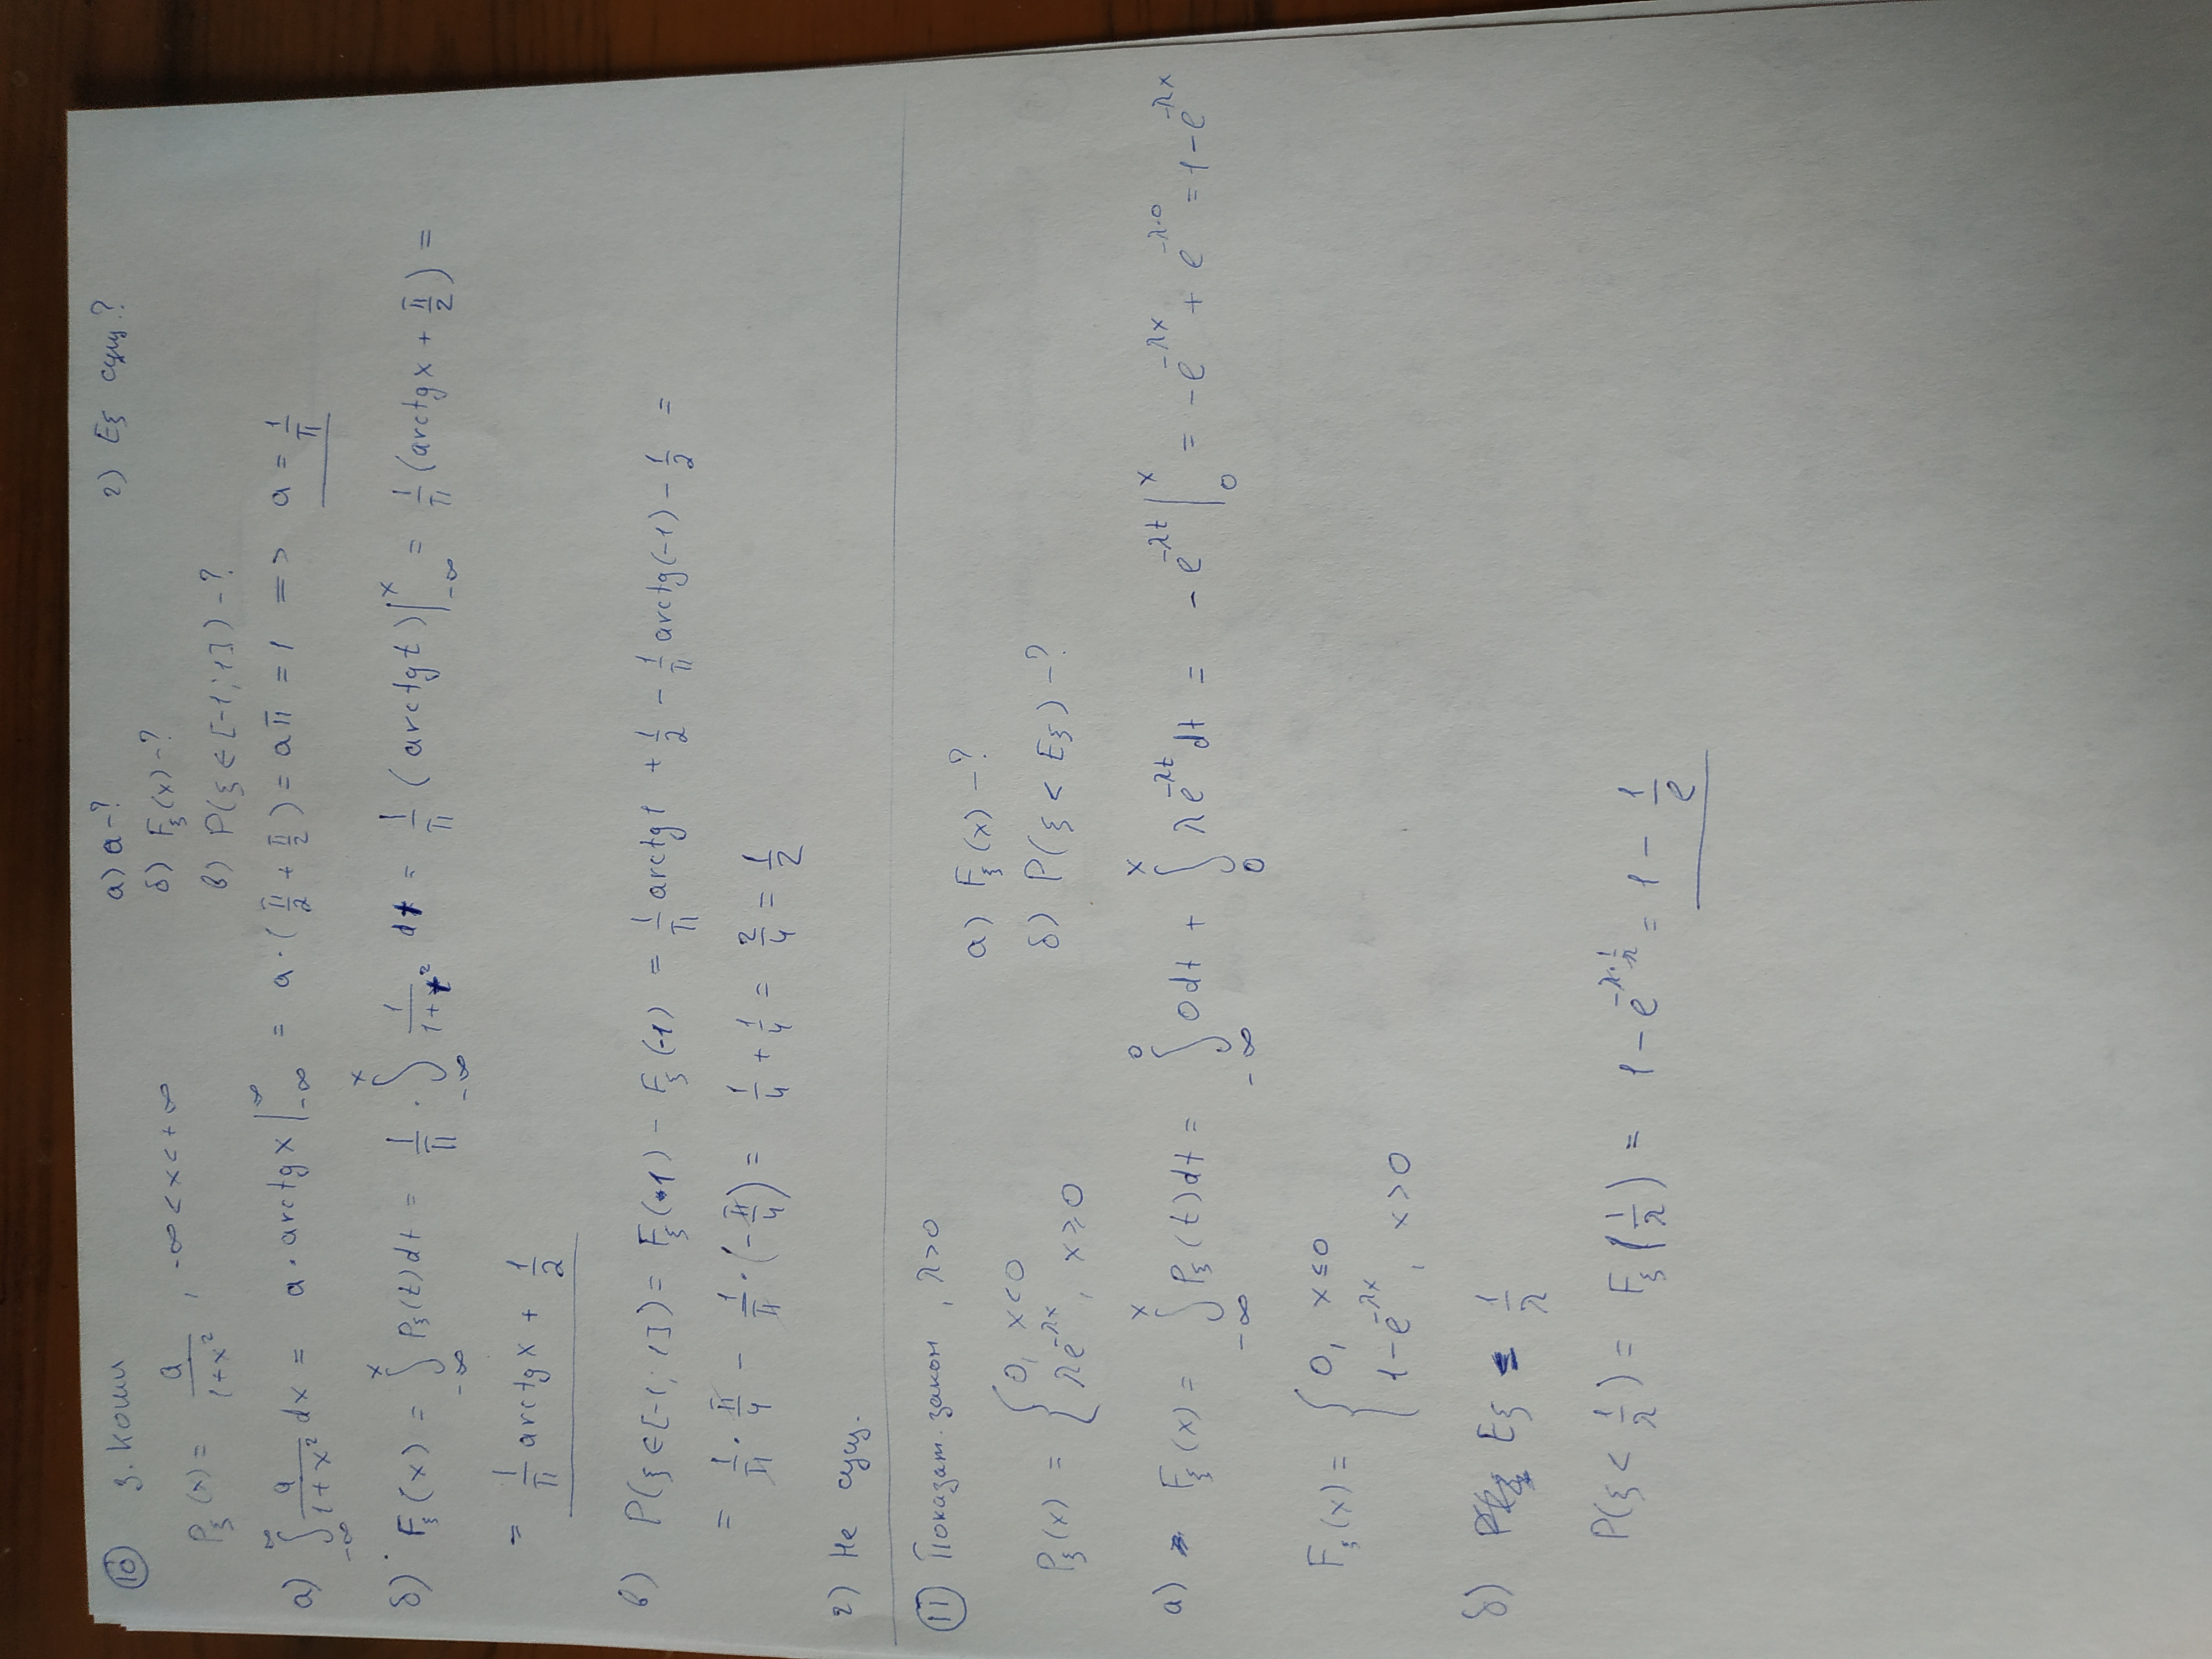 10 з. Коши
P_ξ(x) = a/(1+x²), -∞ < x < +∞
а) a - ?
б) F_ξ(x) - ?
в) P(ξ ∈ [-1; 1]) - ?
г) Eξ сущ?
а) ∫_{-∞}^{∞} a/(1+x²) dx = a · arctg x |_{-∞}^{∞} = a · (π/2 + π/2) = aπ = 1 => a = 1/π
б) F_ξ(x) = ∫_{-∞}^{x} P_ξ(t)dt = 1/π · ∫_{-∞}^{x} 1/(1+t²) dt = 1/π (arctg t)|_{-∞}^{x} = 1/π (arctg x + π/2) =
= 1/π arctg x + 1/2
в) P(ξ ∈ [-1; 1]) = F_ξ(1) - F_ξ(-1) = 1/π arctg 1 + 1/2 - 1/π arctg(-1) - 1/2 =
= 1/π · π/4 - 1/π · (-π/4) = 1/4 + 1/4 = 2/4 = 1/2
г) Не сущ.
11 Показат. закон, λ>0
P_ξ(x) = { 0, x<0
λe^{-λx}, x≥0
а) F_ξ(x) - ?
б) P(ξ < Eξ) - ?
а) F_ξ(x) = ∫_{-∞}^{x} P_ξ(t)dt = ∫_{-∞}^{0} 0dt + ∫_{0}^{x} λe^{-λt}dt = -e^{-λt} |_{0}^{x} = -e^{-λx} + e^{-λ·0} = 1 - e^{-λx}
F_ξ(x) = { 0, x≤0
1 - e^{-λx}, x>0
б) Eξ = 1/λ
P(ξ < 1/λ) = F_ξ(1/λ) = 1 - e^{-λ·1/λ} = 1 - 1/e